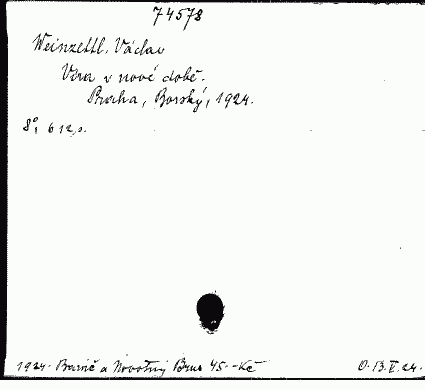 74578
Weinzettl, Václav
Víra v nové době.
Praha, Borský, 1924.
8°, 612, s.
1924. Barvič a Novotný Brno 45.-Kč
O. 13.V.24.